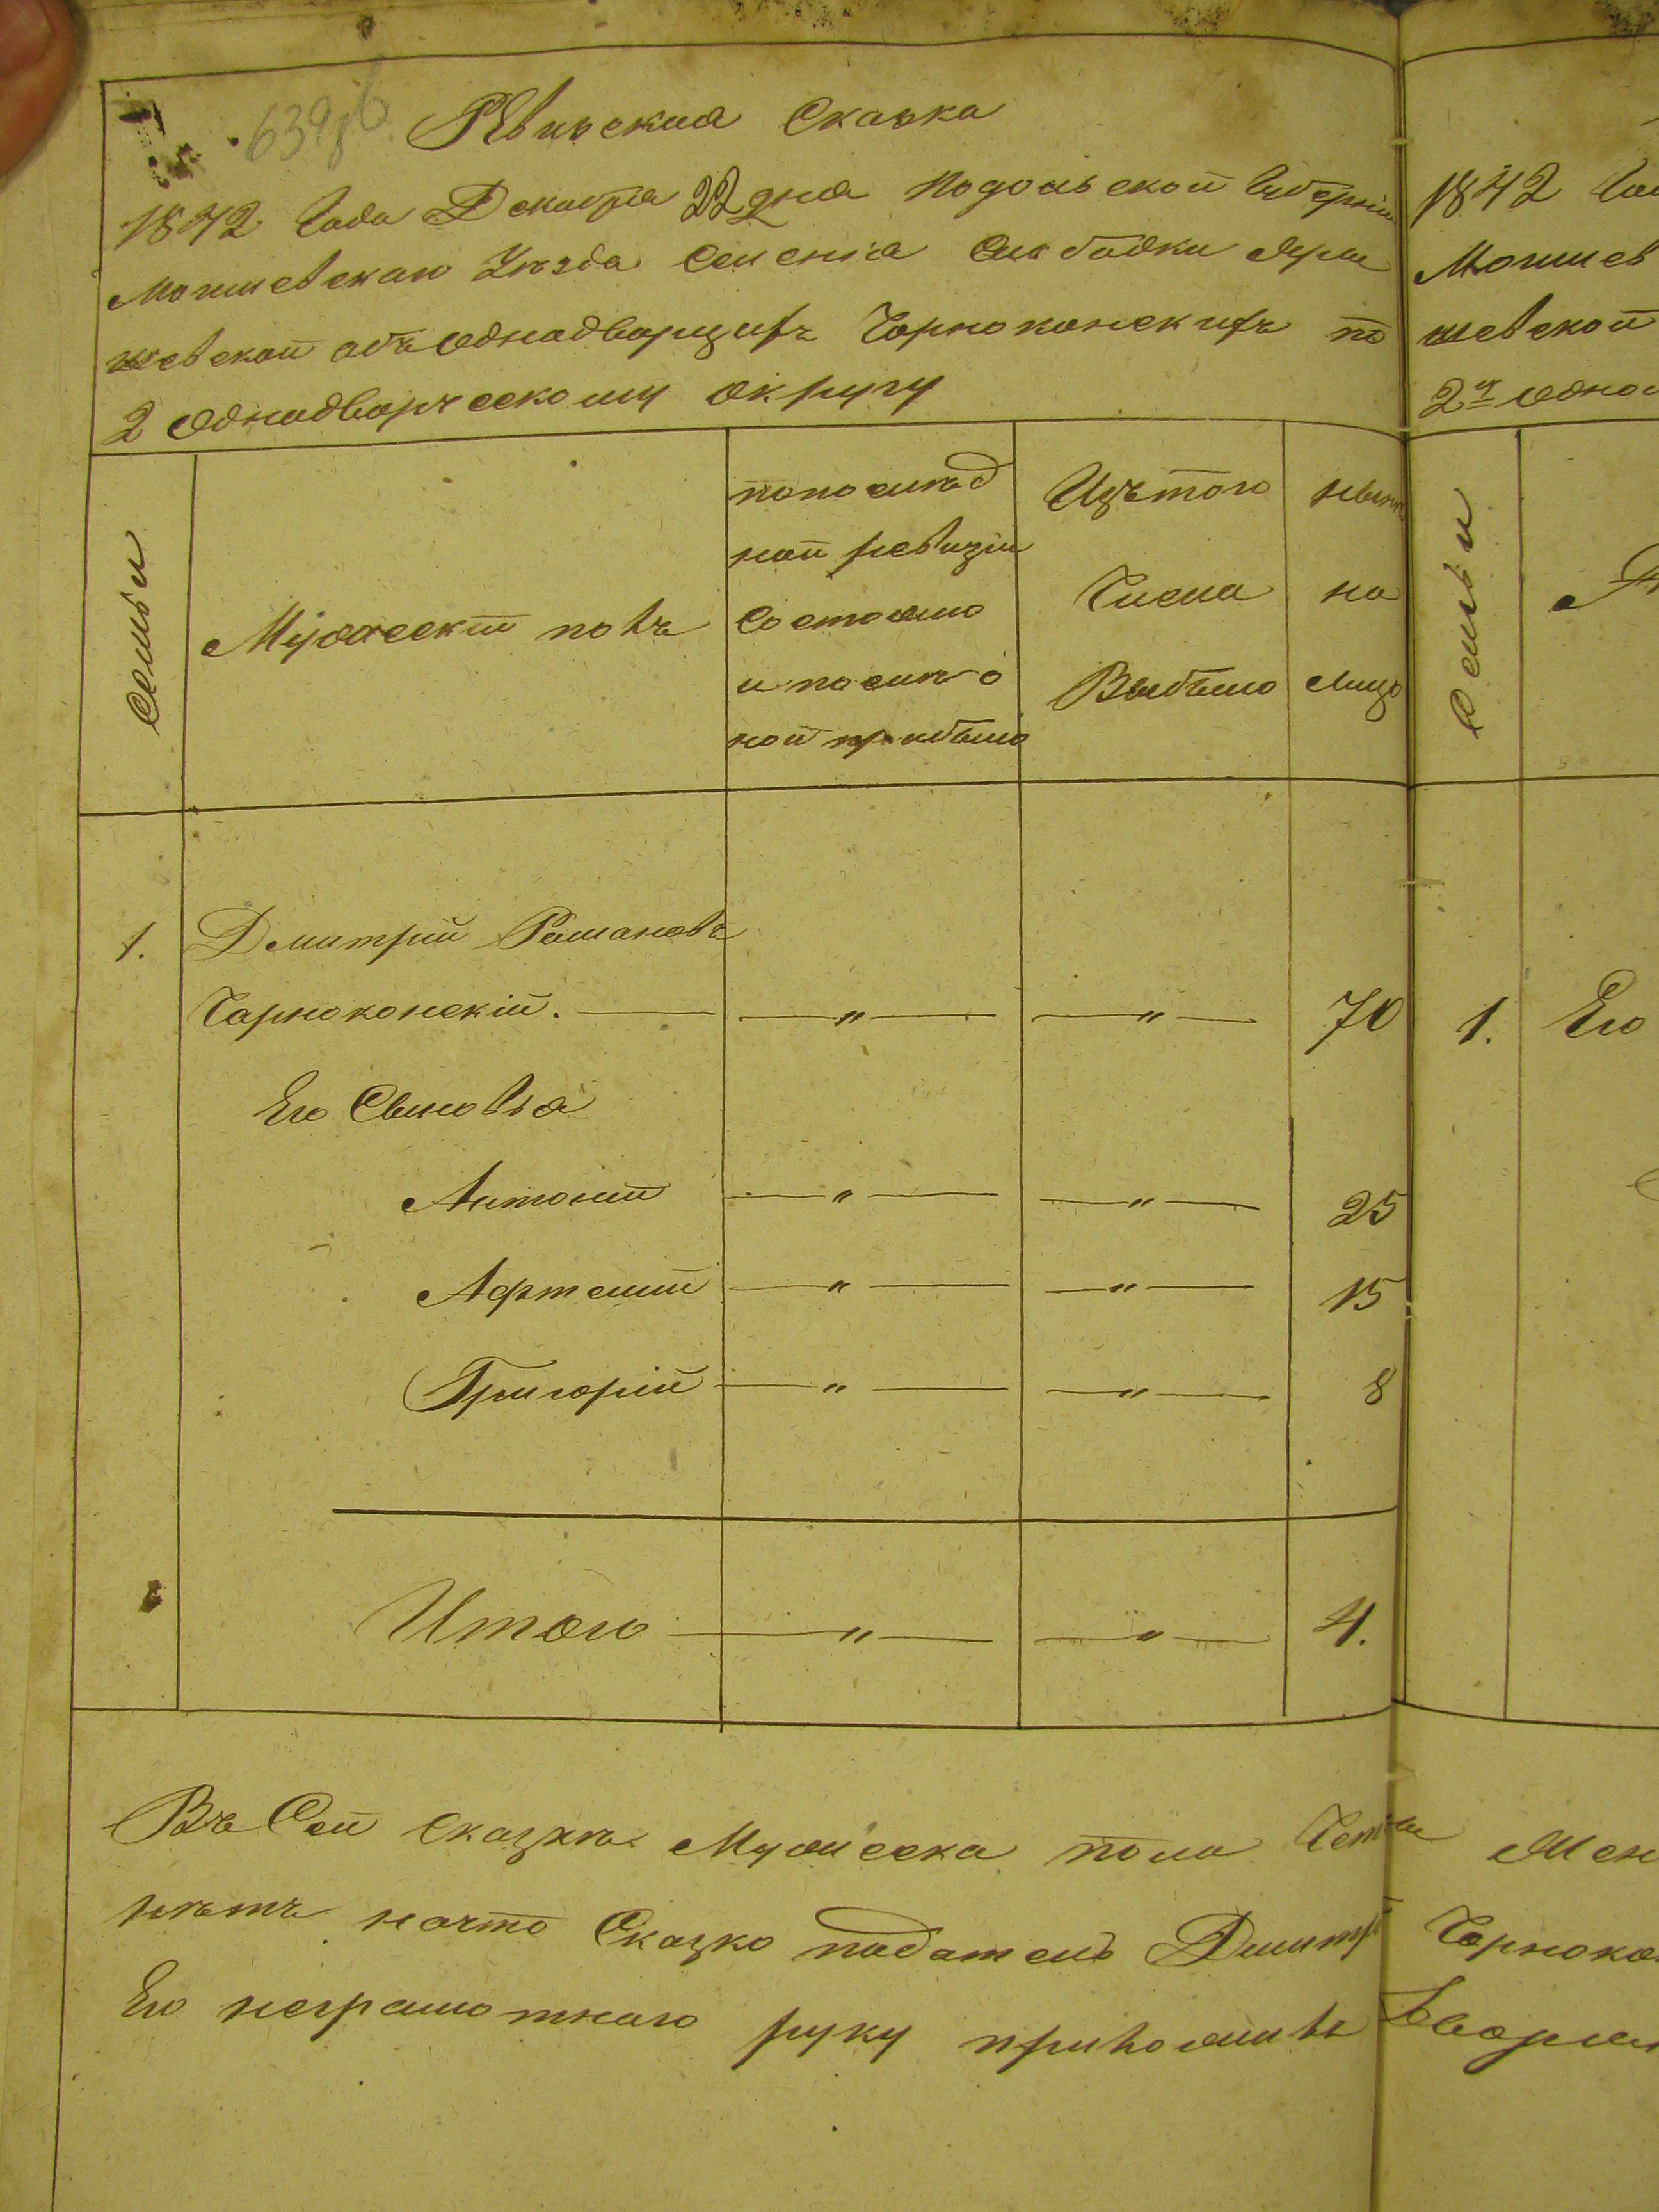 639об
Ревиьская Сказка
1842 Года Декабря 22 дня Подольской Губерніи
Могилевскаго Уѣзда Селенія Слободки Яры
шевской объ однодворцахъ Чорноконскихъ по
2 Однодворческому округу
Семьи
Мужескій полъ
по послѣд
ней ревизіи
Состояло
и послѣ о
ной прибыло
Изъ того
Числа
Выбыло
нынѣ
на
лицо
1. Дмитрій Романовъ
Чарноконскій. — „ — — „ — 70
Его Сыновья
Антоній — „ — — „ — 25
Артемій — „ — — „ — 15
Григорій — „ — — „ — 8
Итого — „ — — „ — 4.
Въ Сей Сказкѣ Мужеска пола
нѣтъ на что Сказко податель Дмитр
Его неграмотнаго руку приложилъ
1842
Могилев
шевской
2й одно
Семьи
1. Его
Чорноко